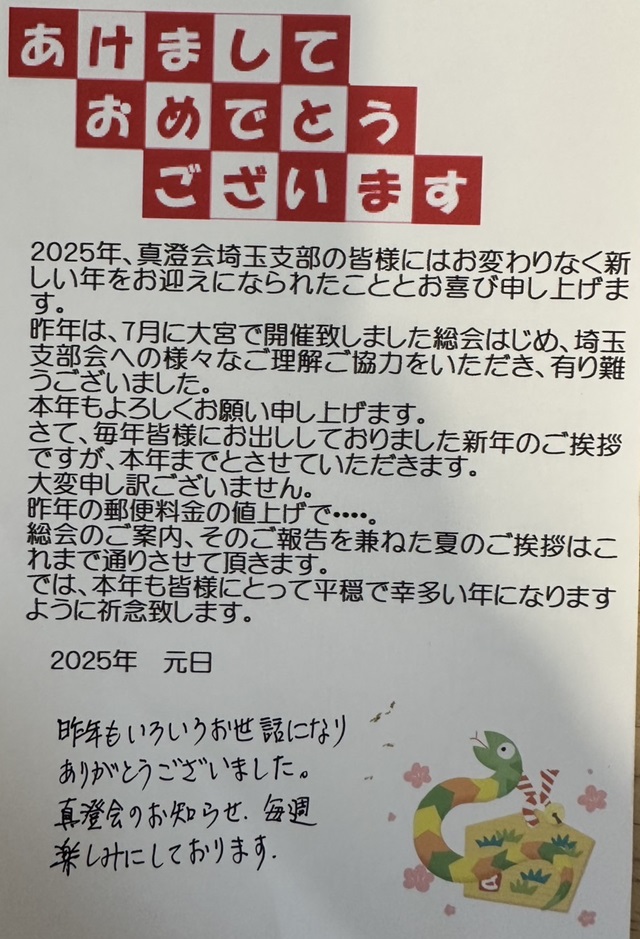 あけまして
おめでとう
ございます
2025年、真澄会埼玉支部の皆様にはお変わりなく新
しい年をお迎えになられたこととお喜び申し上げま
す。
昨年は、7月に大宮で開催致しました総会はじめ、埼玉
支部会への様々なご理解ご協力をいただき、有り難
うございました。
本年もよろしくお願い申し上げます。
さて、毎年皆様にお出ししておりました新年のご挨拶
ですが、本年までとさせていただきます。
大変申し訳ございません。
昨年の郵便料金の値上げで・・・・。
総会のご案内、そのご報告を兼ねた夏のご挨拶はこ
れまで通りさせて頂きます。
では、本年も皆様にとって平穏で幸多い年になります
ように祈念致します。
2025年　元日
昨年もいろいろお世話になり
ありがとうございました。
真澄会のお知らせ、毎週
楽しみにしております.